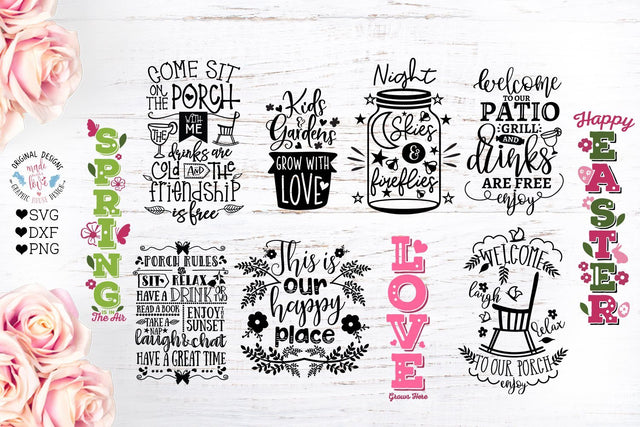 ORIGINAL DESIGNS
made with love
GRAPHIC HOUSE DESIGN
SVG
DXF
PNG
SPRING
IS IN
The Air
COME SIT
ON THE PORCH
WITH
ME
THE
drinks are
COLD AND THE
friendship
is free
Kids
&
Gardens
GROW WITH
LOVE
Night
Skies
&
fireflies
welcome
TO OUR
PATIO
GRILL AND
drinks
ARE FREE
enjoy
Happy
EASTER
PORCH RULES
SIT RELAX
HAVE A DRINK
READ A BOOK
TAKE A
NAP
ENJOY
SUNSET
laugh & chat
HAVE A GREAT TIME
This is
our
happy
place
LOVE
Grows Here
WELCOME
laugh
relax
TO OUR PORCH
enjoy